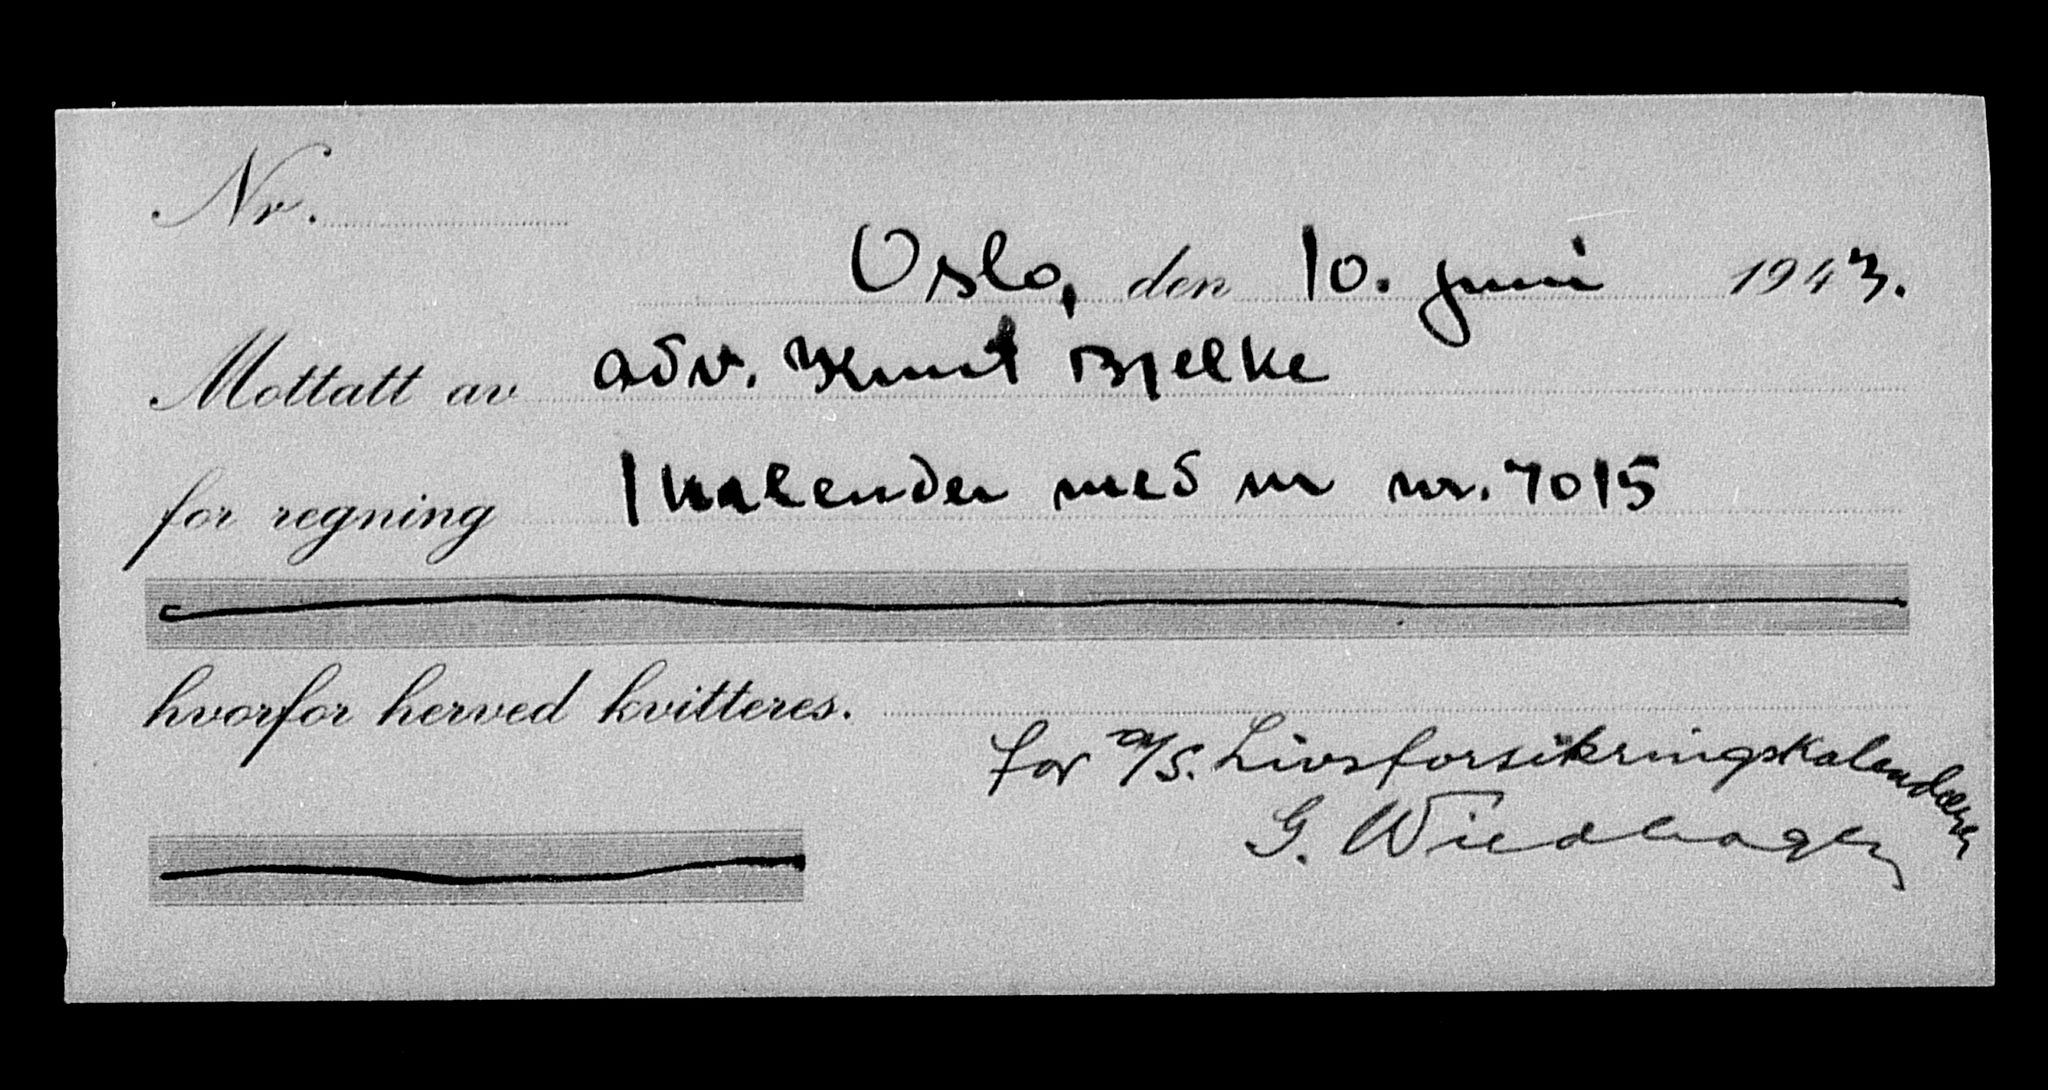 Nr.
Oslo, den 10. juni 1943.
Mottatt av adv. Knut Bjelke
for regning 1 kalender med nr. 7015
hvorfor herved kvitteres.
for A/S. Livsforsikringskalenderen
G. Wiedhagen